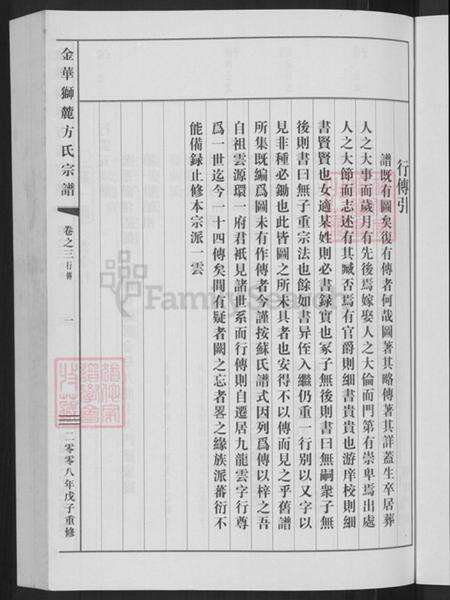 行傳引
譜既有圖矣復有傳者何哉圖著其略傳著其詳蓋生卒居葬
人之大事而歲月有先後焉嫁娶人之大倫而門第有崇卑焉出處
人之大節而志述有其臧否焉有官爵則細書貴貴也游庠校則細
書賢賢也女適某姓則必書錄實也冢子無後則書曰無嗣衆子無
後則書曰無子重宗法也餘如書异侄入繼仍重一行別以又字以
見非種必鋤也此皆圖之所未具者也安得不以傳而見之乎舊譜
所集既編爲圖未有作傳者今謹按蘇氏譜式因列爲傳以梓之吾
自祖雲源環一府君衹見諸世系而行傳則自遷居九龍雲字行尊
爲一世迄今一十四傳矣間有疑者闕之忘者畧之緣族派蕃衍不
能備録止修本宗派一雲
金華獅麓方氏宗譜
卷之三行傳
一
二零零八年戊子重修